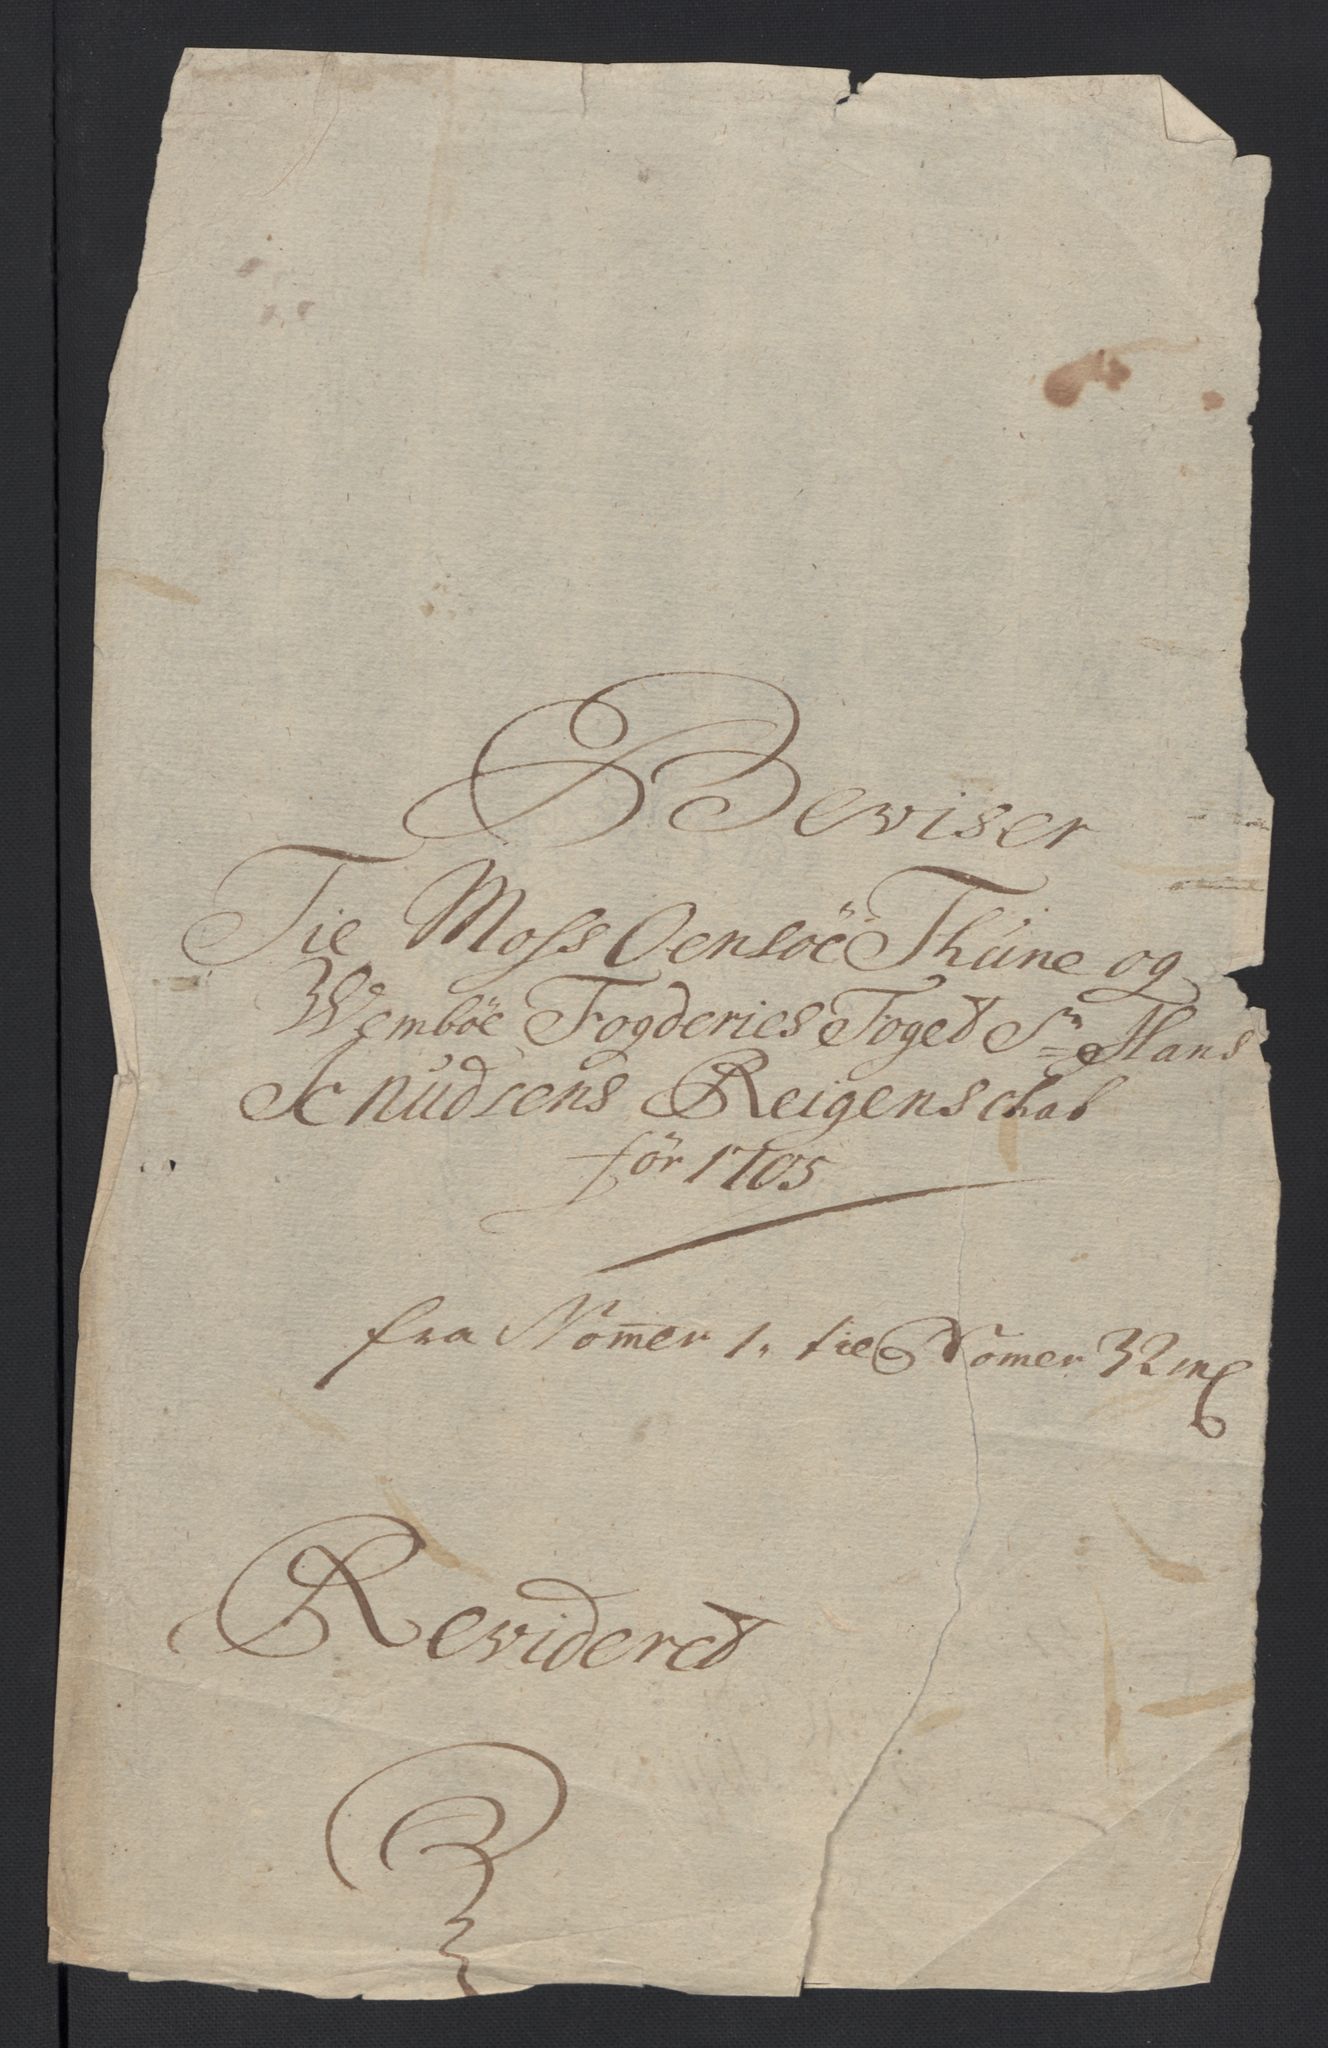 Beviser
Tie Moss Oensöe Thüne og
Wemböe Fogderies Foged Sr Hans
Knudsens Reigenschab
för 1705
fra Nom̅er 1. tie Nomer 32
Revidered